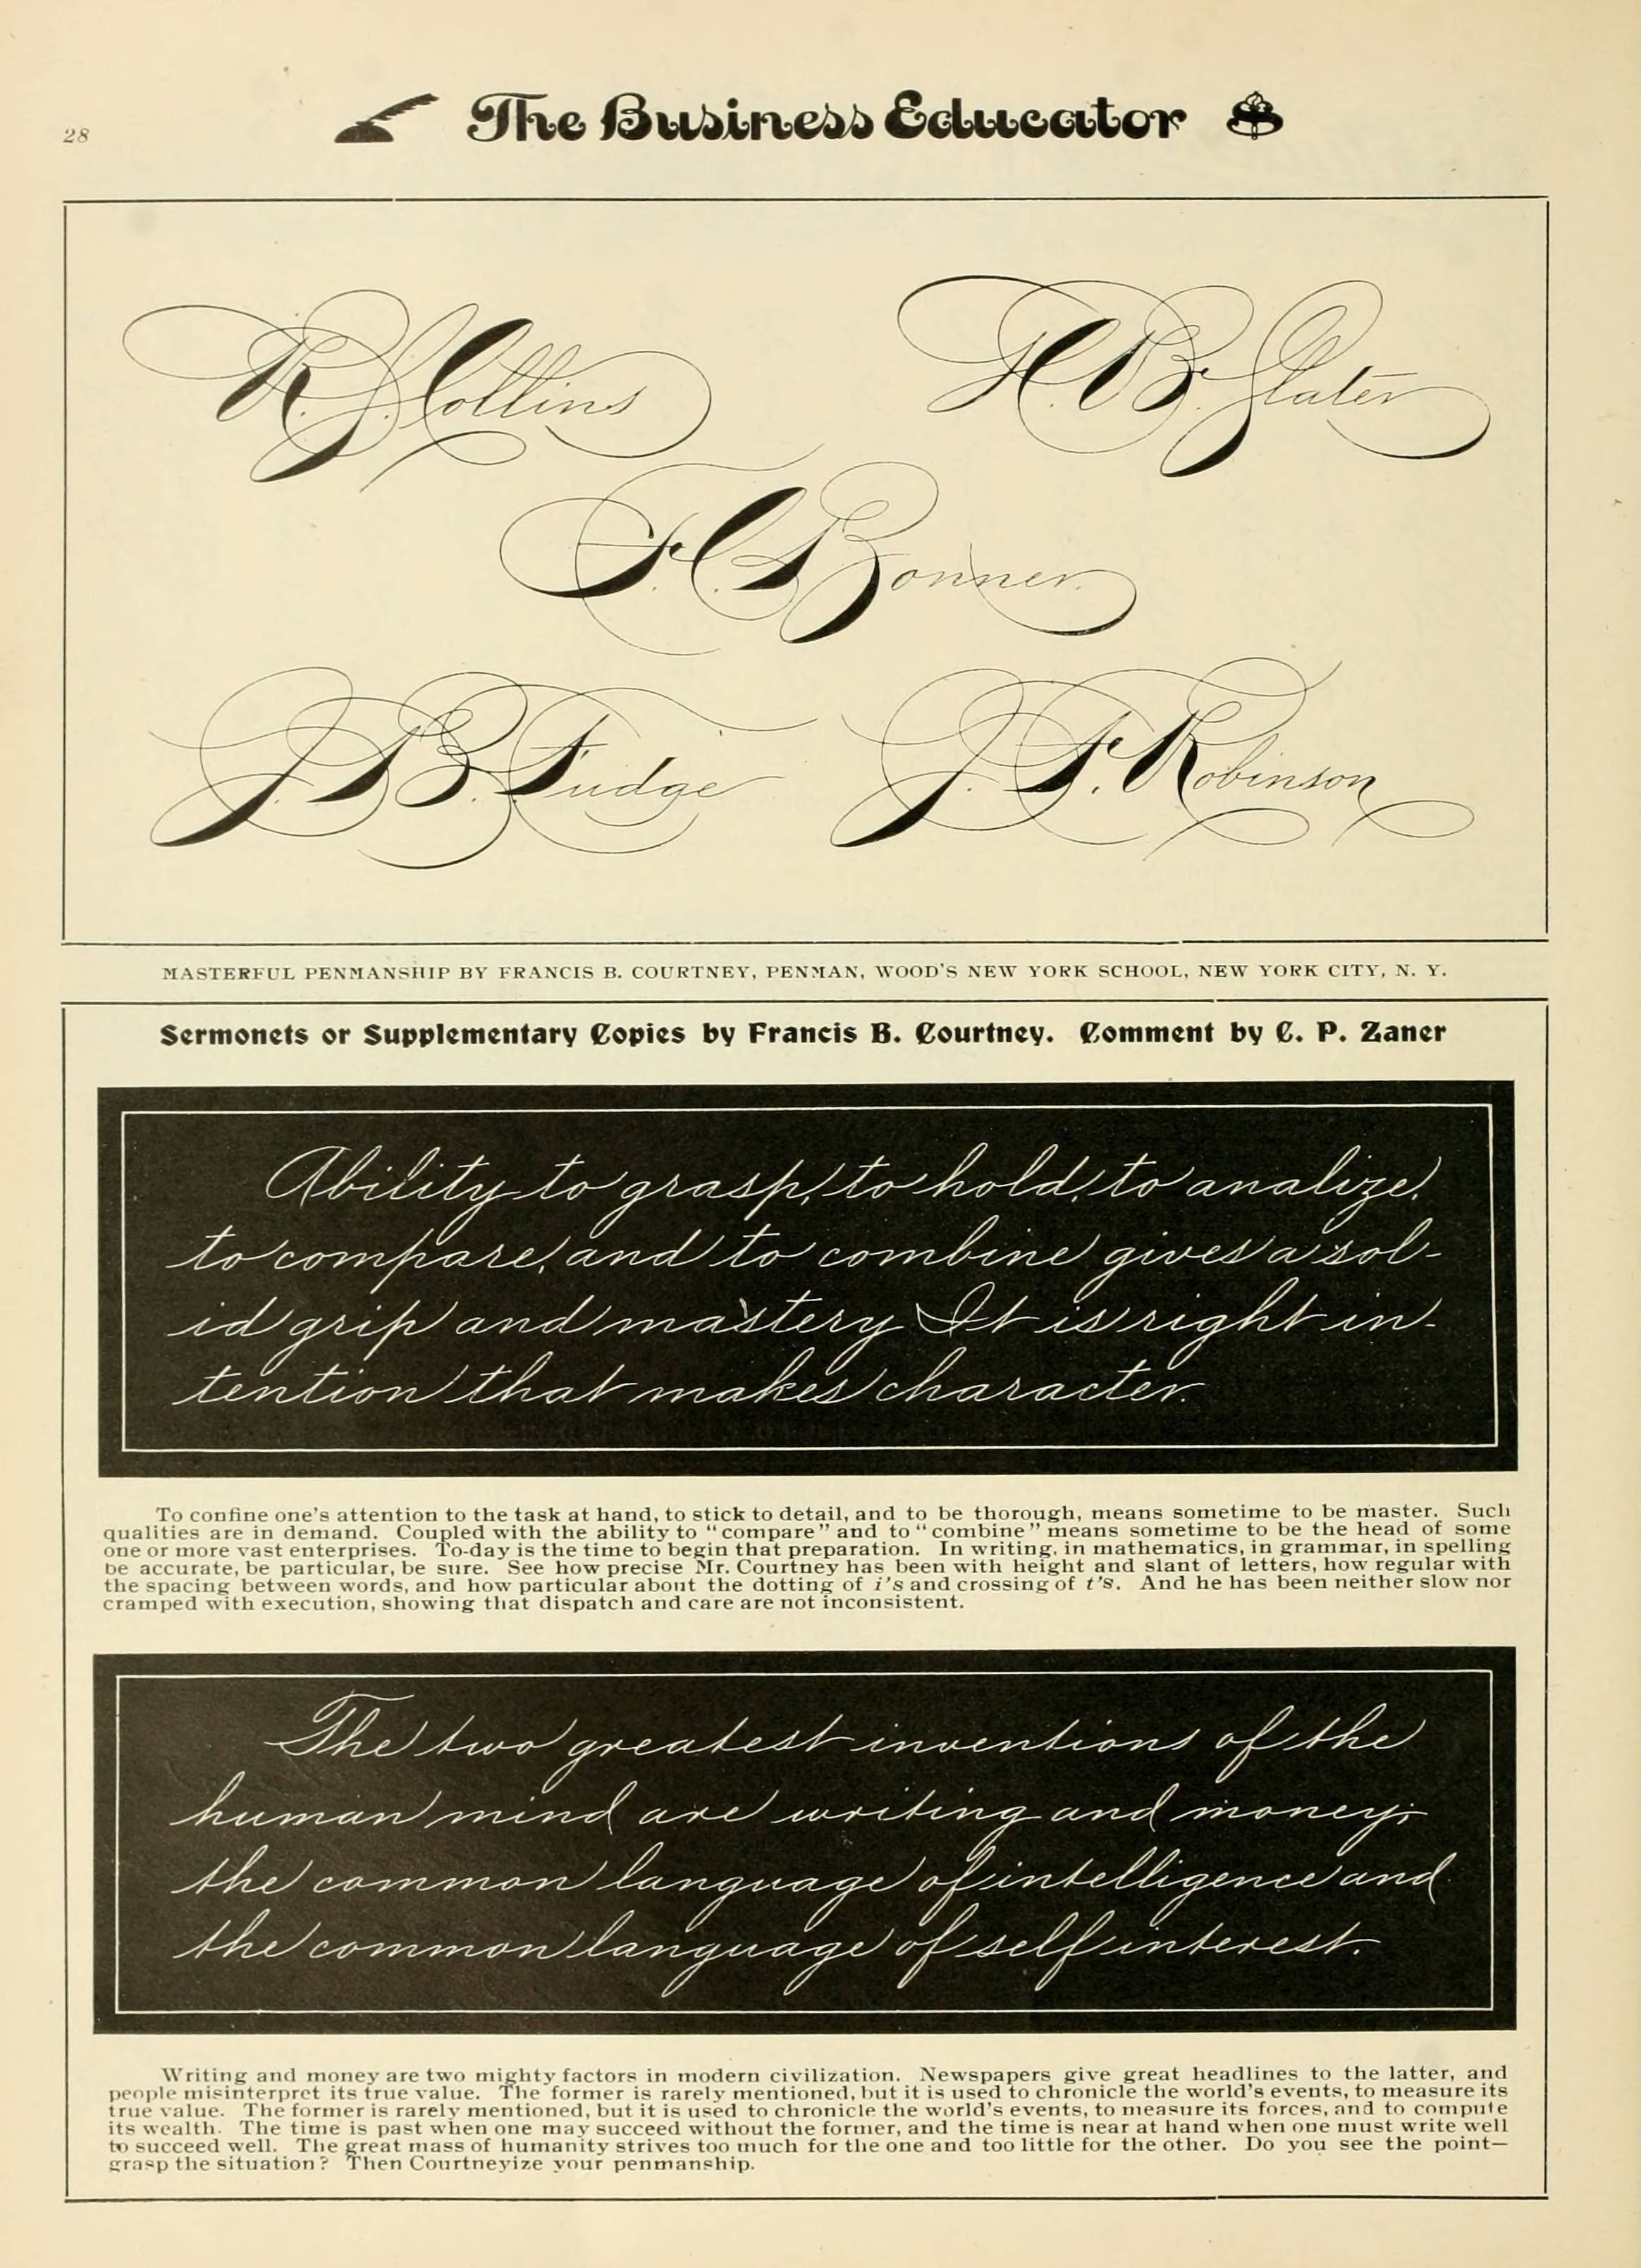 28
The Business Educator
R. S. Collins
H. B. Slater
F. C. Bonner.
J. B. Fudge
J. F. Robinson
MASTERFUL PENMANSHIP BY FRANCIS B. COURTNEY, PENMAN, WOOD'S NEW YORK SCHOOL, NEW YORK CITY, N. Y.
Sermonets or Supplementary Copies by Francis B. Courtney. Comment by C. P. Zaner
Ability to grasp, to hold, to analize,
to compare, and to combine gives a sol-
id grip and mastery It is right in-
tention that makes character.
To confine one's attention to the task at hand, to stick to detail, and to be thorough, means sometime to be master. Such
qualities are in demand. Coupled with the ability to "compare" and to "combine" means sometime to be the head of some
one or more vast enterprises. To-day is the time to begin that preparation. In writing, in mathematics, in grammar, in spelling
be accurate, be particular, be sure. See how precise Mr. Courtney has been with height and slant of letters, how regular with
the spacing between words, and how particular about the dotting of i's and crossing of t's. And he has been neither slow nor
cramped with execution, showing that dispatch and care are not inconsistent.
The two greatest inventions of the
human mind are writing and money;
the common language of intelligence and
the common language of self interest.
Writing and money are two mighty factors in modern civilization. Newspapers give great headlines to the latter, and
people misinterpret its true value. The former is rarely mentioned, but it is used to chronicle the world's events, to measure its
true value. The former is rarely mentioned, but it is used to chronicle the world's events, to measure its forces, and to compute
its wealth. The time is past when one may succeed without the former, and the time is near at hand when one must write well
to succeed well. The great mass of humanity strives too much for the one and too little for the other. Do you see the point—
grasp the situation? Then Courtneyize your penmanship.